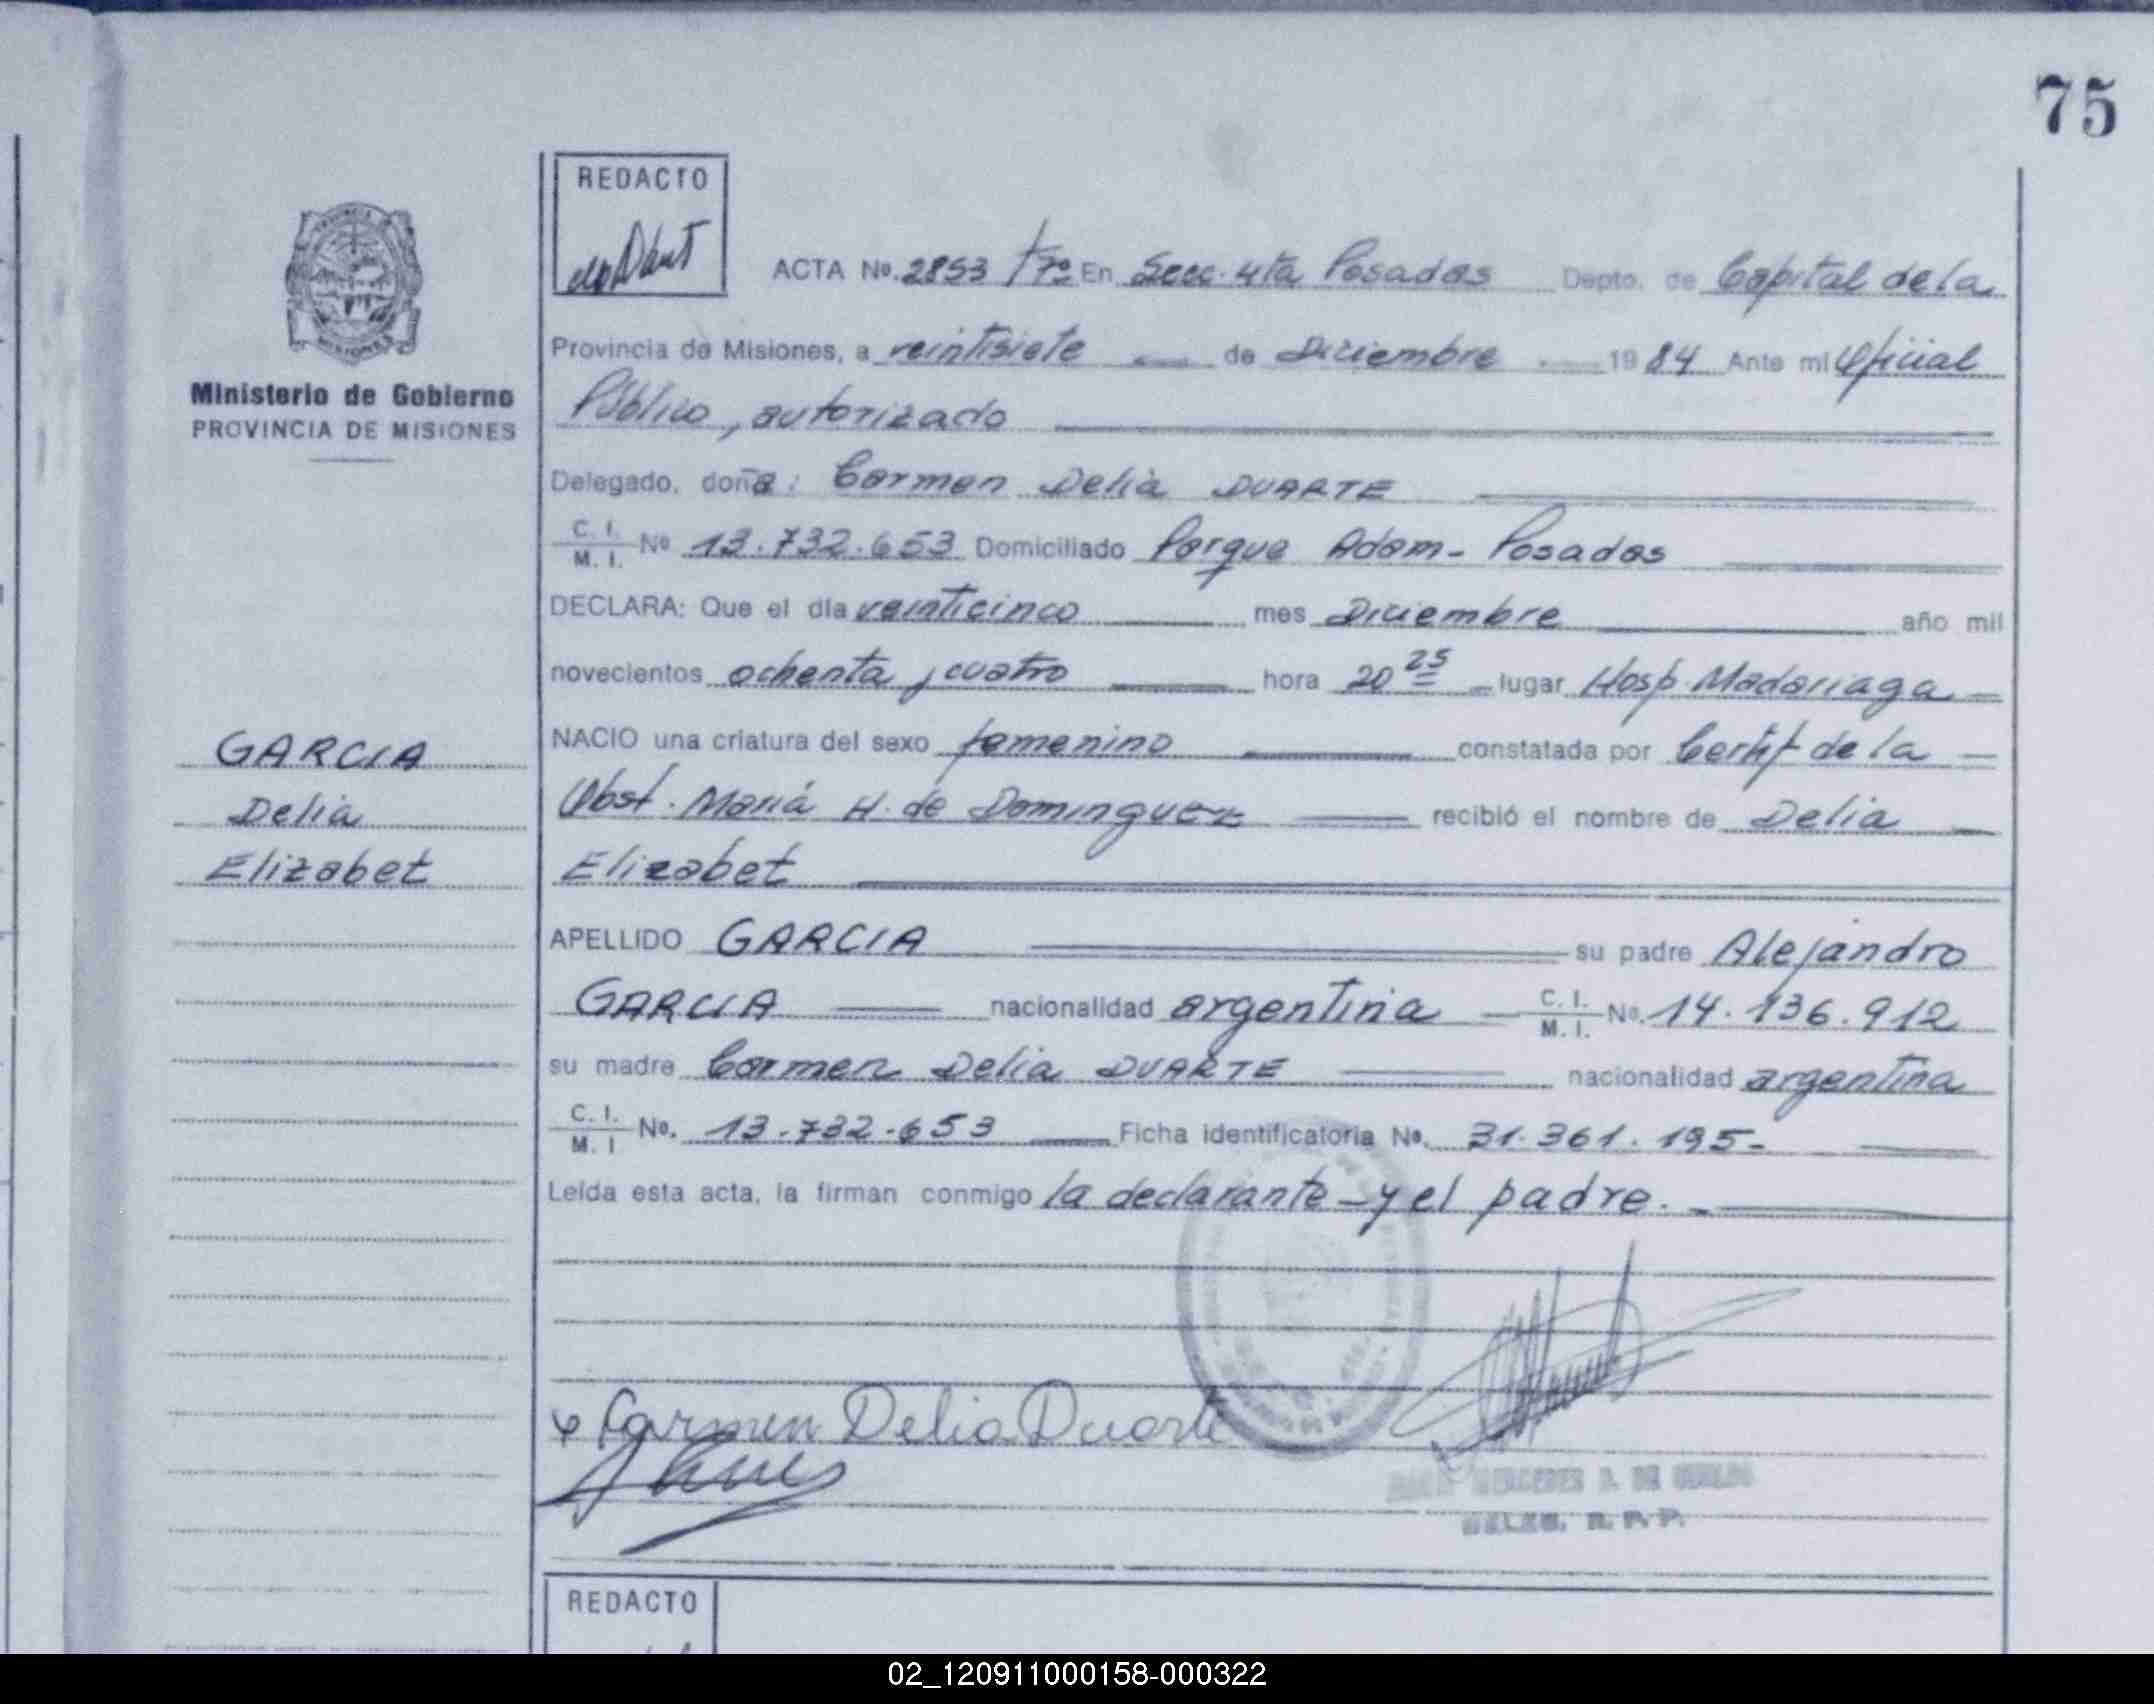 75
REDACTO
ACTA No. 2853 /Tº En Secc. 4ta Posadas Depto. de Capital de la
Provincia de Misiones, a veintisiete de Diciembre 1984 Ante mi Oficial
Público, autorizado
Delegado, doña: Carmen Delia DUARTE
C. I. / M. I. No 13.732.653 Domiciliado Parque Adam - Posadas
DECLARA: Que el día veinticinco mes Diciembre año mil
novecientos ochenta y cuatro hora 20 25 lugar Hosp. Madariaga
NACIO una criatura del sexo femenino constatada por Certif de la
Obst. María H. de Dominguez recibió el nombre de Delia
Elizabet
APELLIDO GARCIA su padre Alejandro
GARCIA nacionalidad argentina C. I. / M. I. No. 14.136.912
su madre Carmen Delia DUARTE nacionalidad argentina
C. I. / M. I No. 13.732.653 Ficha identificatoria No. 31.361.195-
Leída esta acta, la firman conmigo la declarante - y el padre.
Carmen Delia Duarte
MERCEDES
R. P. P.
REDACTO
PROVINCIA
MISIONES
Ministerio de Gobierno
PROVINCIA DE MISIONES
GARCIA
Delia
Elizabet
02_120911000158-000322